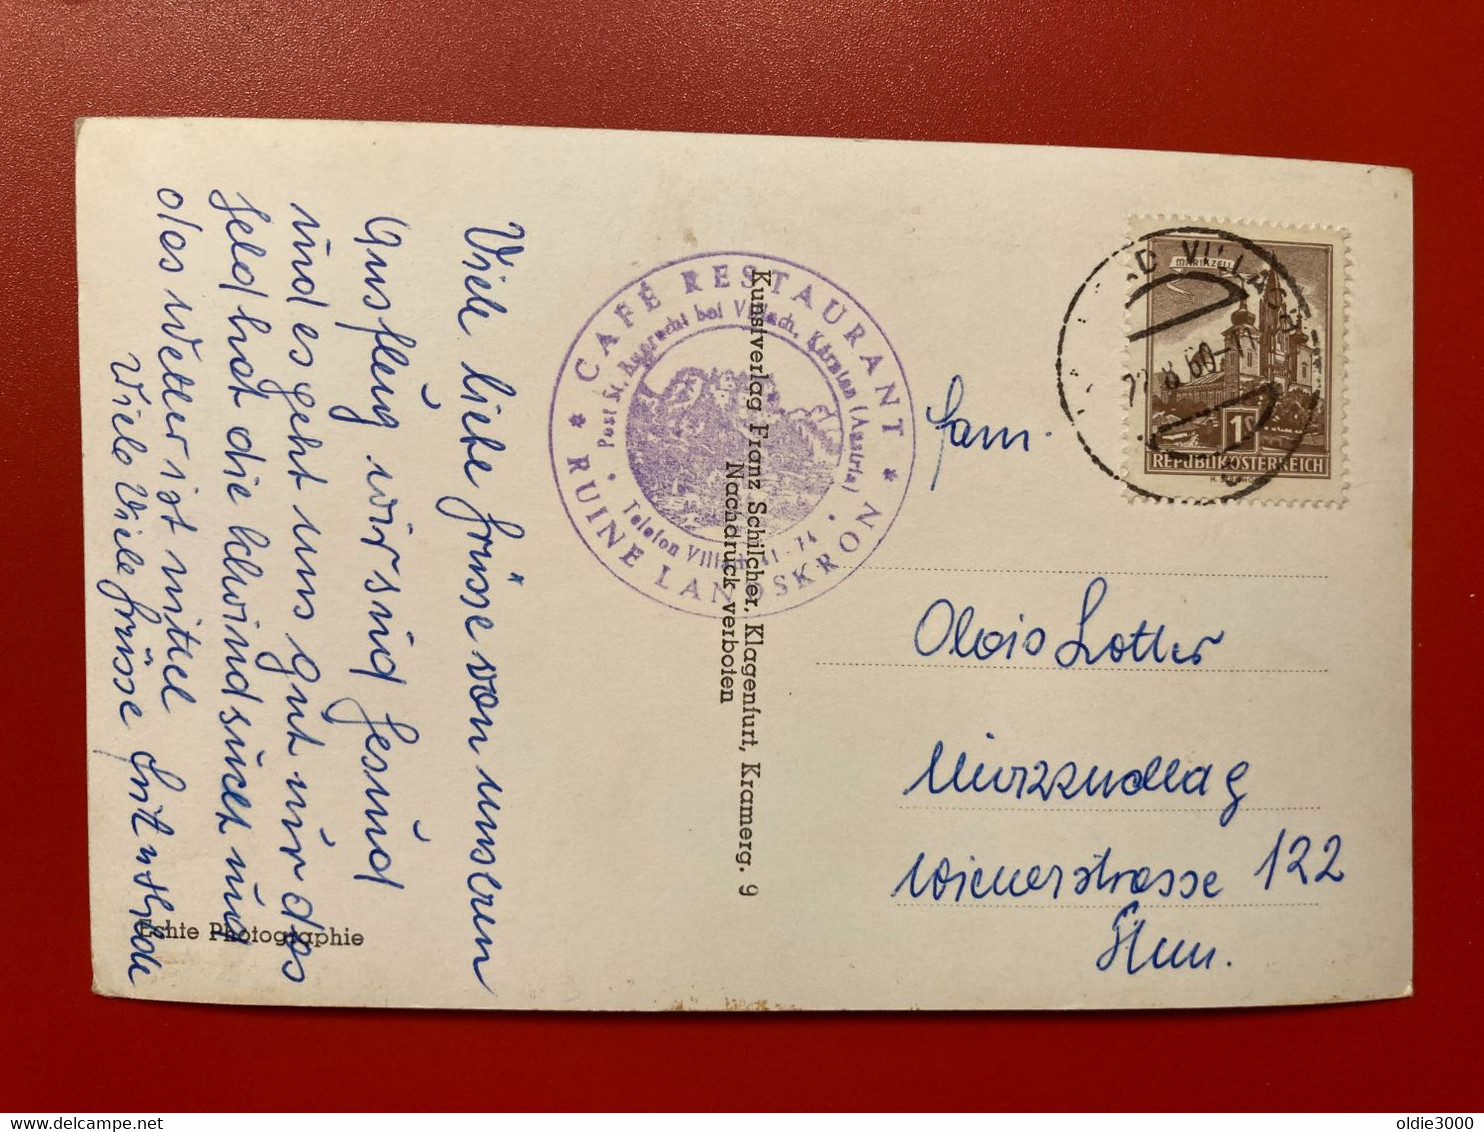 Viele liebe Grüsse von unseren
Ausfleug wir sind Gesund
und es geht uns gut nur das
Geld hat die
das Wetter ist mittel
Viele Viele Grüsse
Echte Photographie
CAFÉ RESTAURANT
* RUINE LANDSKRON *
Post St. Ruprecht bei Villach, Kärnten (Austria)
Telefon Villach 41-74
Kunstverlag Franz Schilcher, Klagenfurt, Kramerg. 9
Nachdruck verboten
BAD VILLACH
22.8.60-11
MARIAZELL
1S
REPUBLIK ÖSTERREICH
Fam.
Alois Lotter
Mürzzuschlag
Wienerstrasse 122
Stmk.
delcampe.net
oldie3000